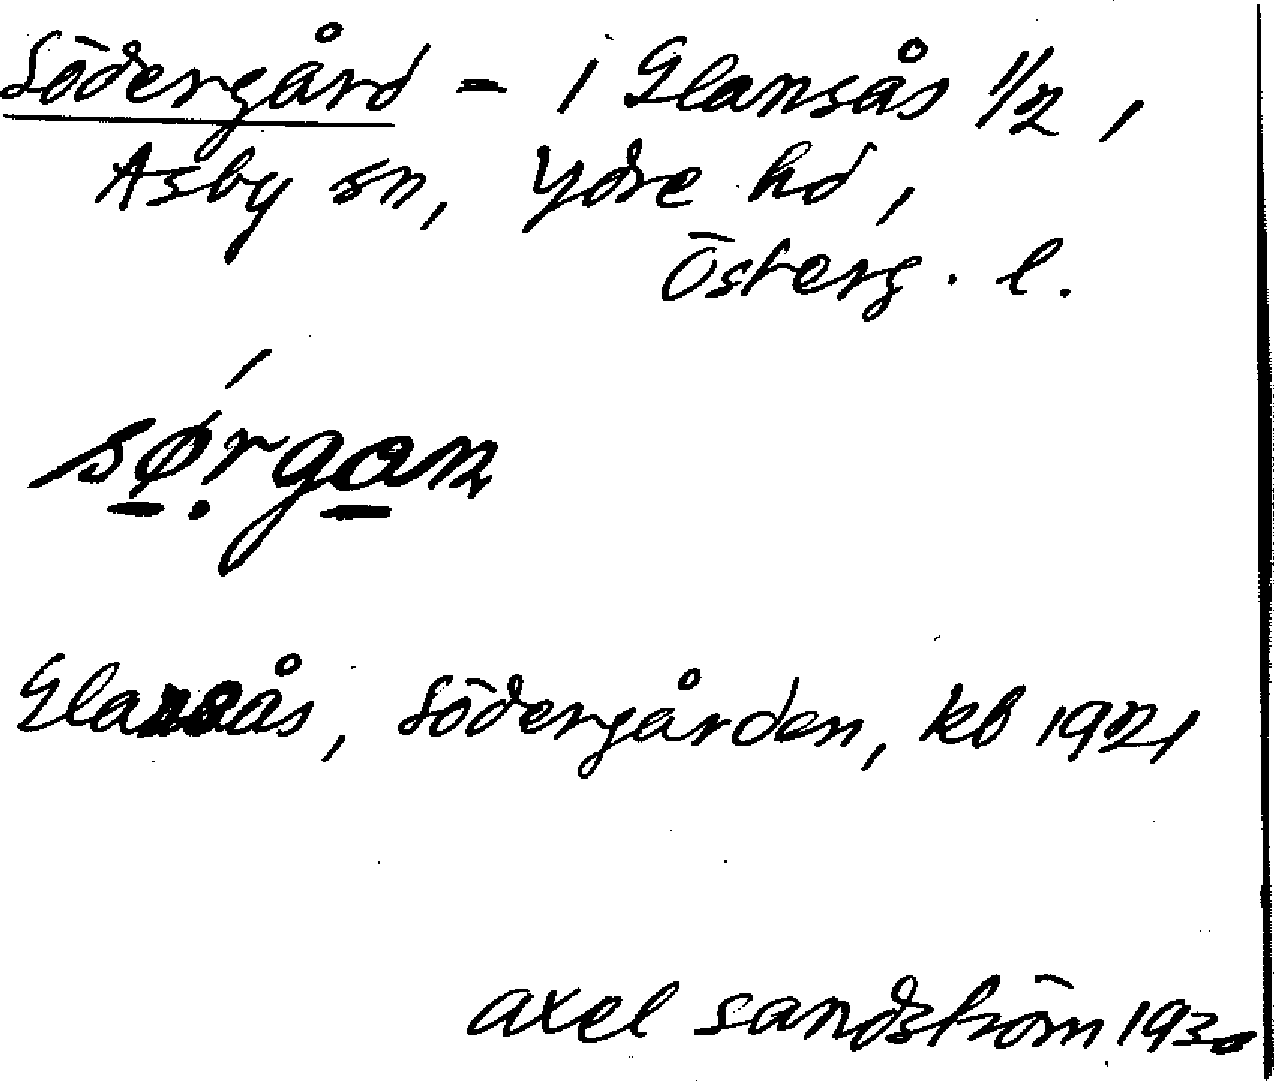 Södergård - i Glansås 1/2,
Asby sn, Ydre hd,
Österg. l.
sø̱ṛga̱n
Glansås, Södergården, kb 1921
Axel Sandström 1930